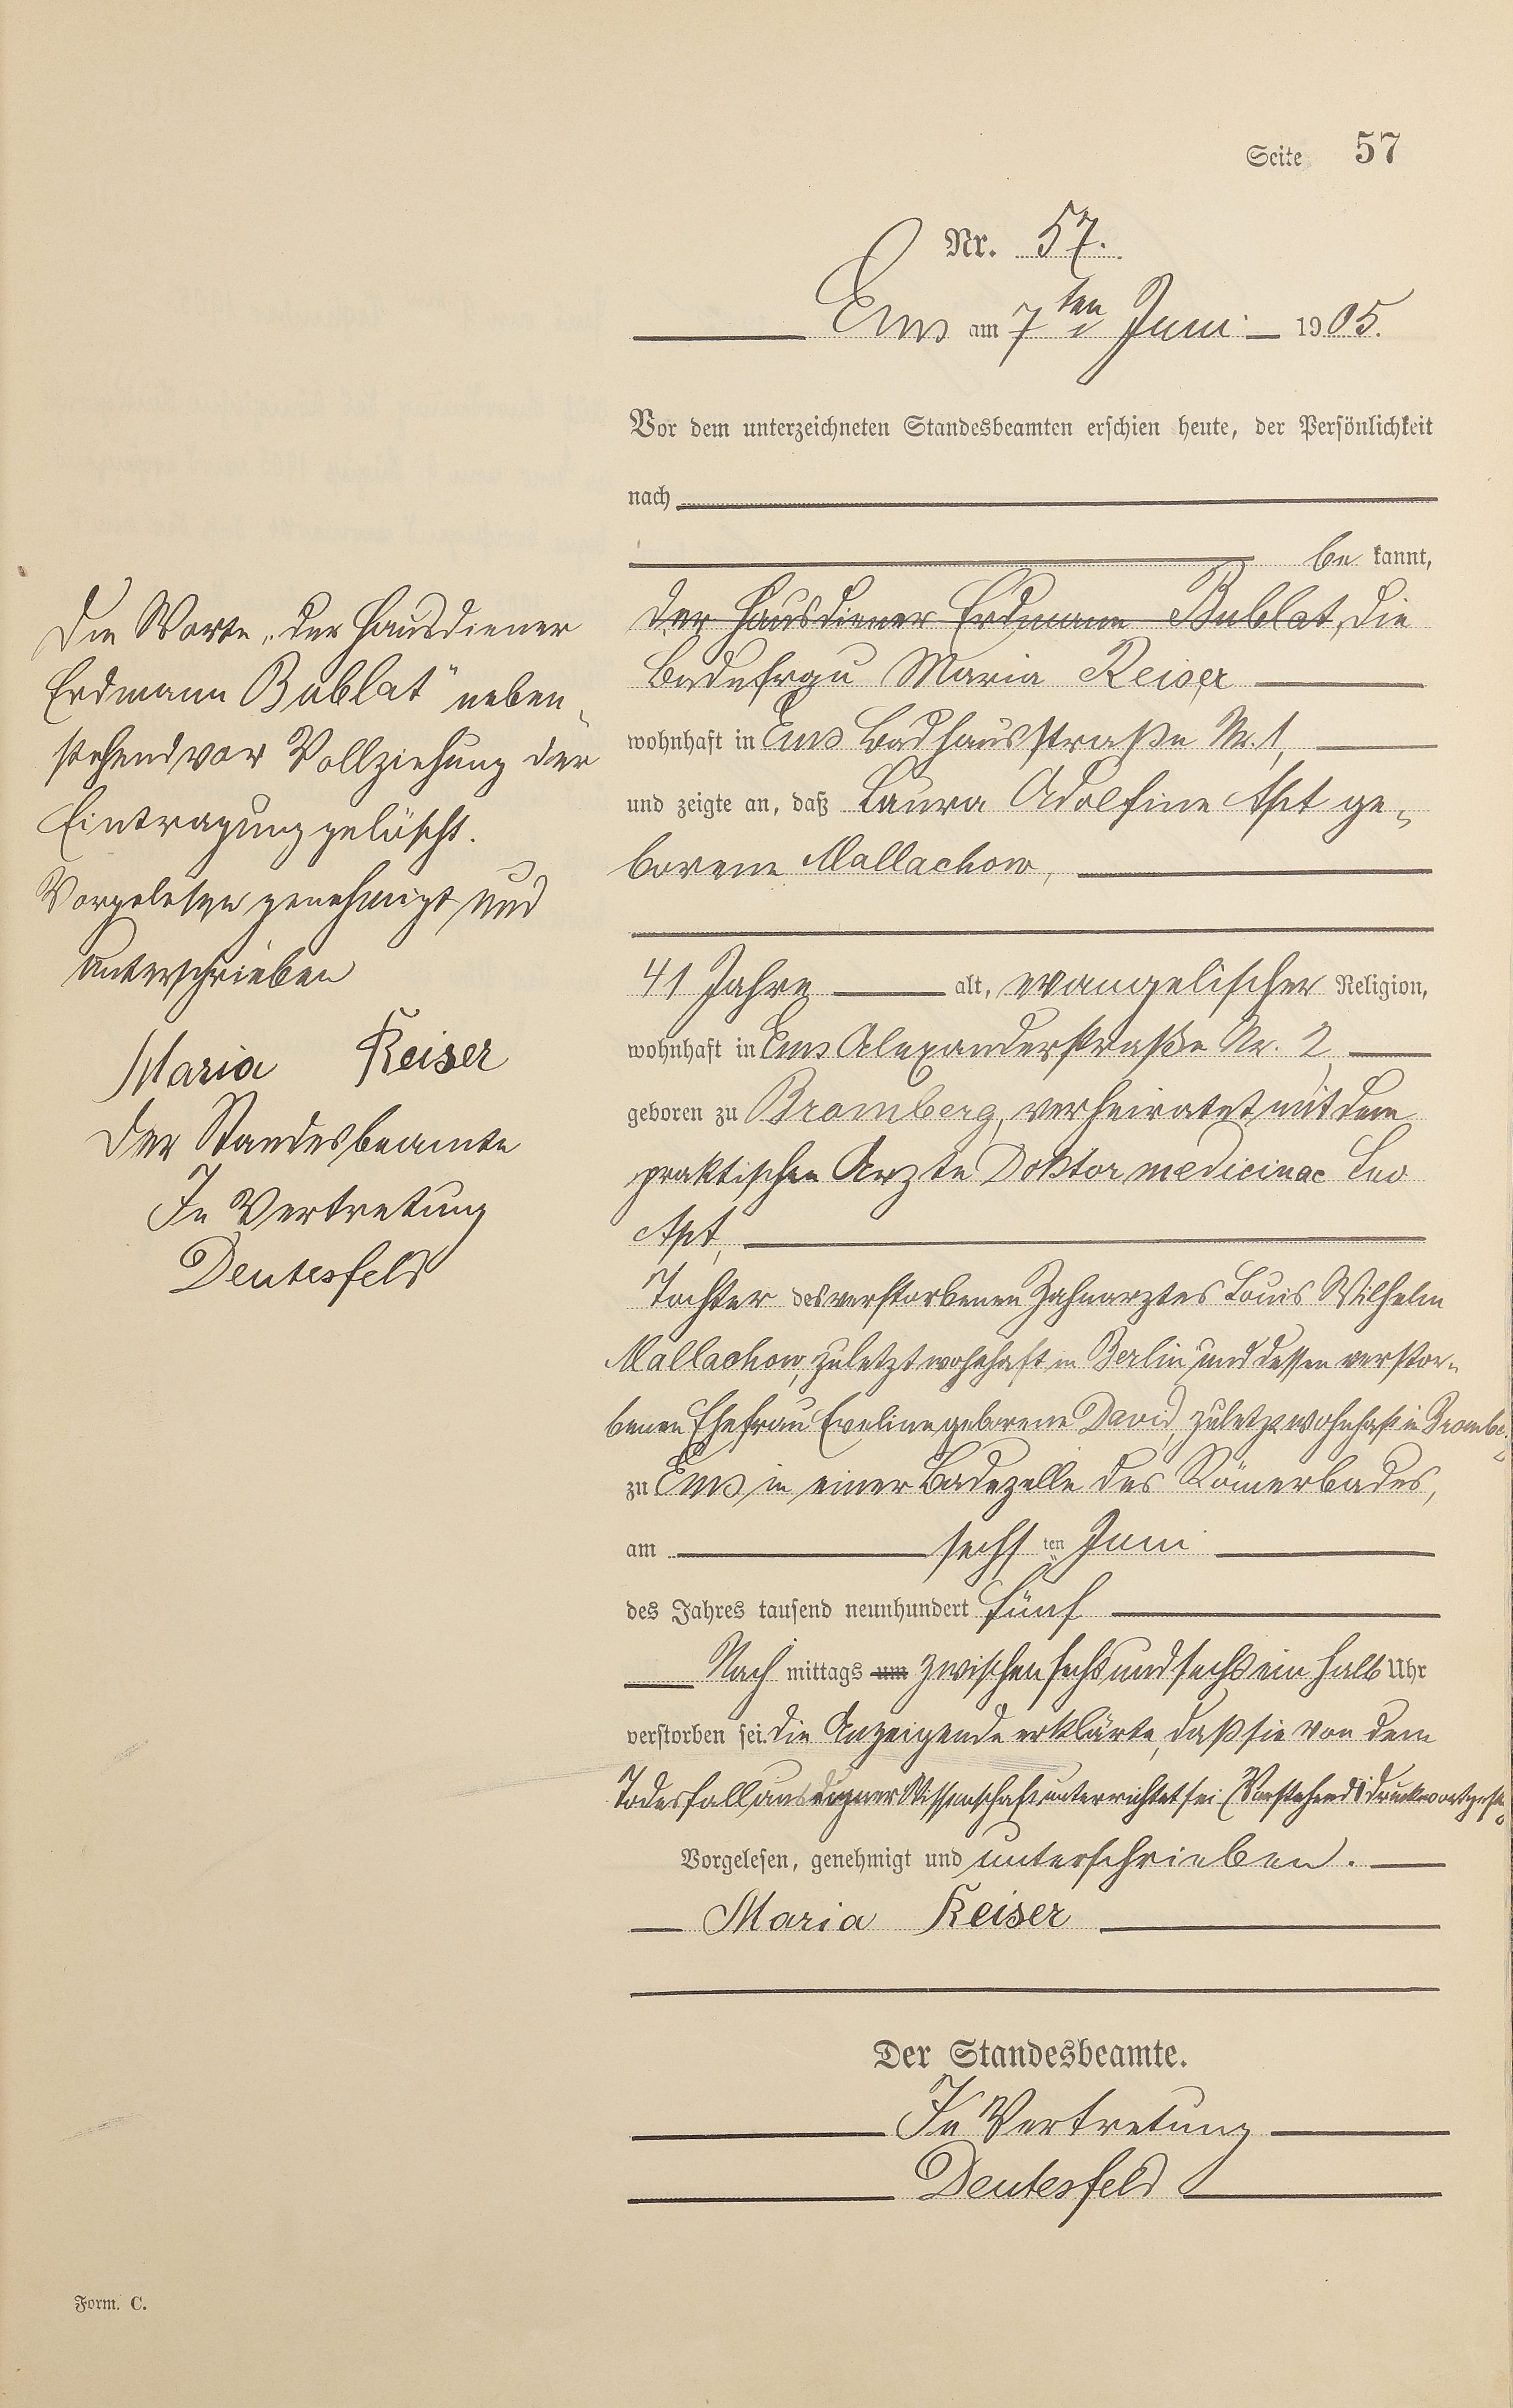 Seite 57
Nr. 57.
Ems am 7ten Juni 1905.
Vor dem unterzeichneten Standesbeamten erschien heute, der Persönlichkeit
nach
be kannt,
der Hausdiener Erdmann Bublat, die
Badefrau Maria Reiser
wohnhaft in Ems Badhausstraße Nr. 1,
und zeigte an, daß Laura Adolfine Apt ge-
borene Mallachow,
41 Jahre alt, evangelischer Religion,
wohnhaft in Ems Alexanderstraße Nr. 2,
geboren zu Bromberg, verheiratet mit dem
praktischen Arzte Doktor medicinae Leo
Apt,
Tochter des verstorbenen Zahnarztes Louis Wilhelm
Mallachow, zuletzt wohnhaft in Berlin und dessen verstor-
benen Ehefrau Eveline geborene David, zuletzt wohnhaft in
zu Ems in einer Badezelle des Römerbades,
am sechs ten Juni
des Jahres tausend neunhundert fünf
Nach mittags um zwischen sechs und sechs ein halb Uhr
verstorben sei. Die Anzeigende erklärte, daß sie von dem
Todesfall aus eigener Wissenschaft unterrichtet sei (Vorstehend 1 Druckwort
Vorgelesen, genehmigt und unterschrieben.
Maria Reiser
Der Standesbeamte.
In Vertretung
Deutesfeld
Die Worte „der Hausdiener
Erdmann Bublat" neben-
stehend vor Vollziehung der
Eintragung gelöscht.
Vorgelesen genehmigt und
unterschrieben
Maria Reiser
Der Standesbeamte
In Vertretung
Deutesfeld
Form. C.